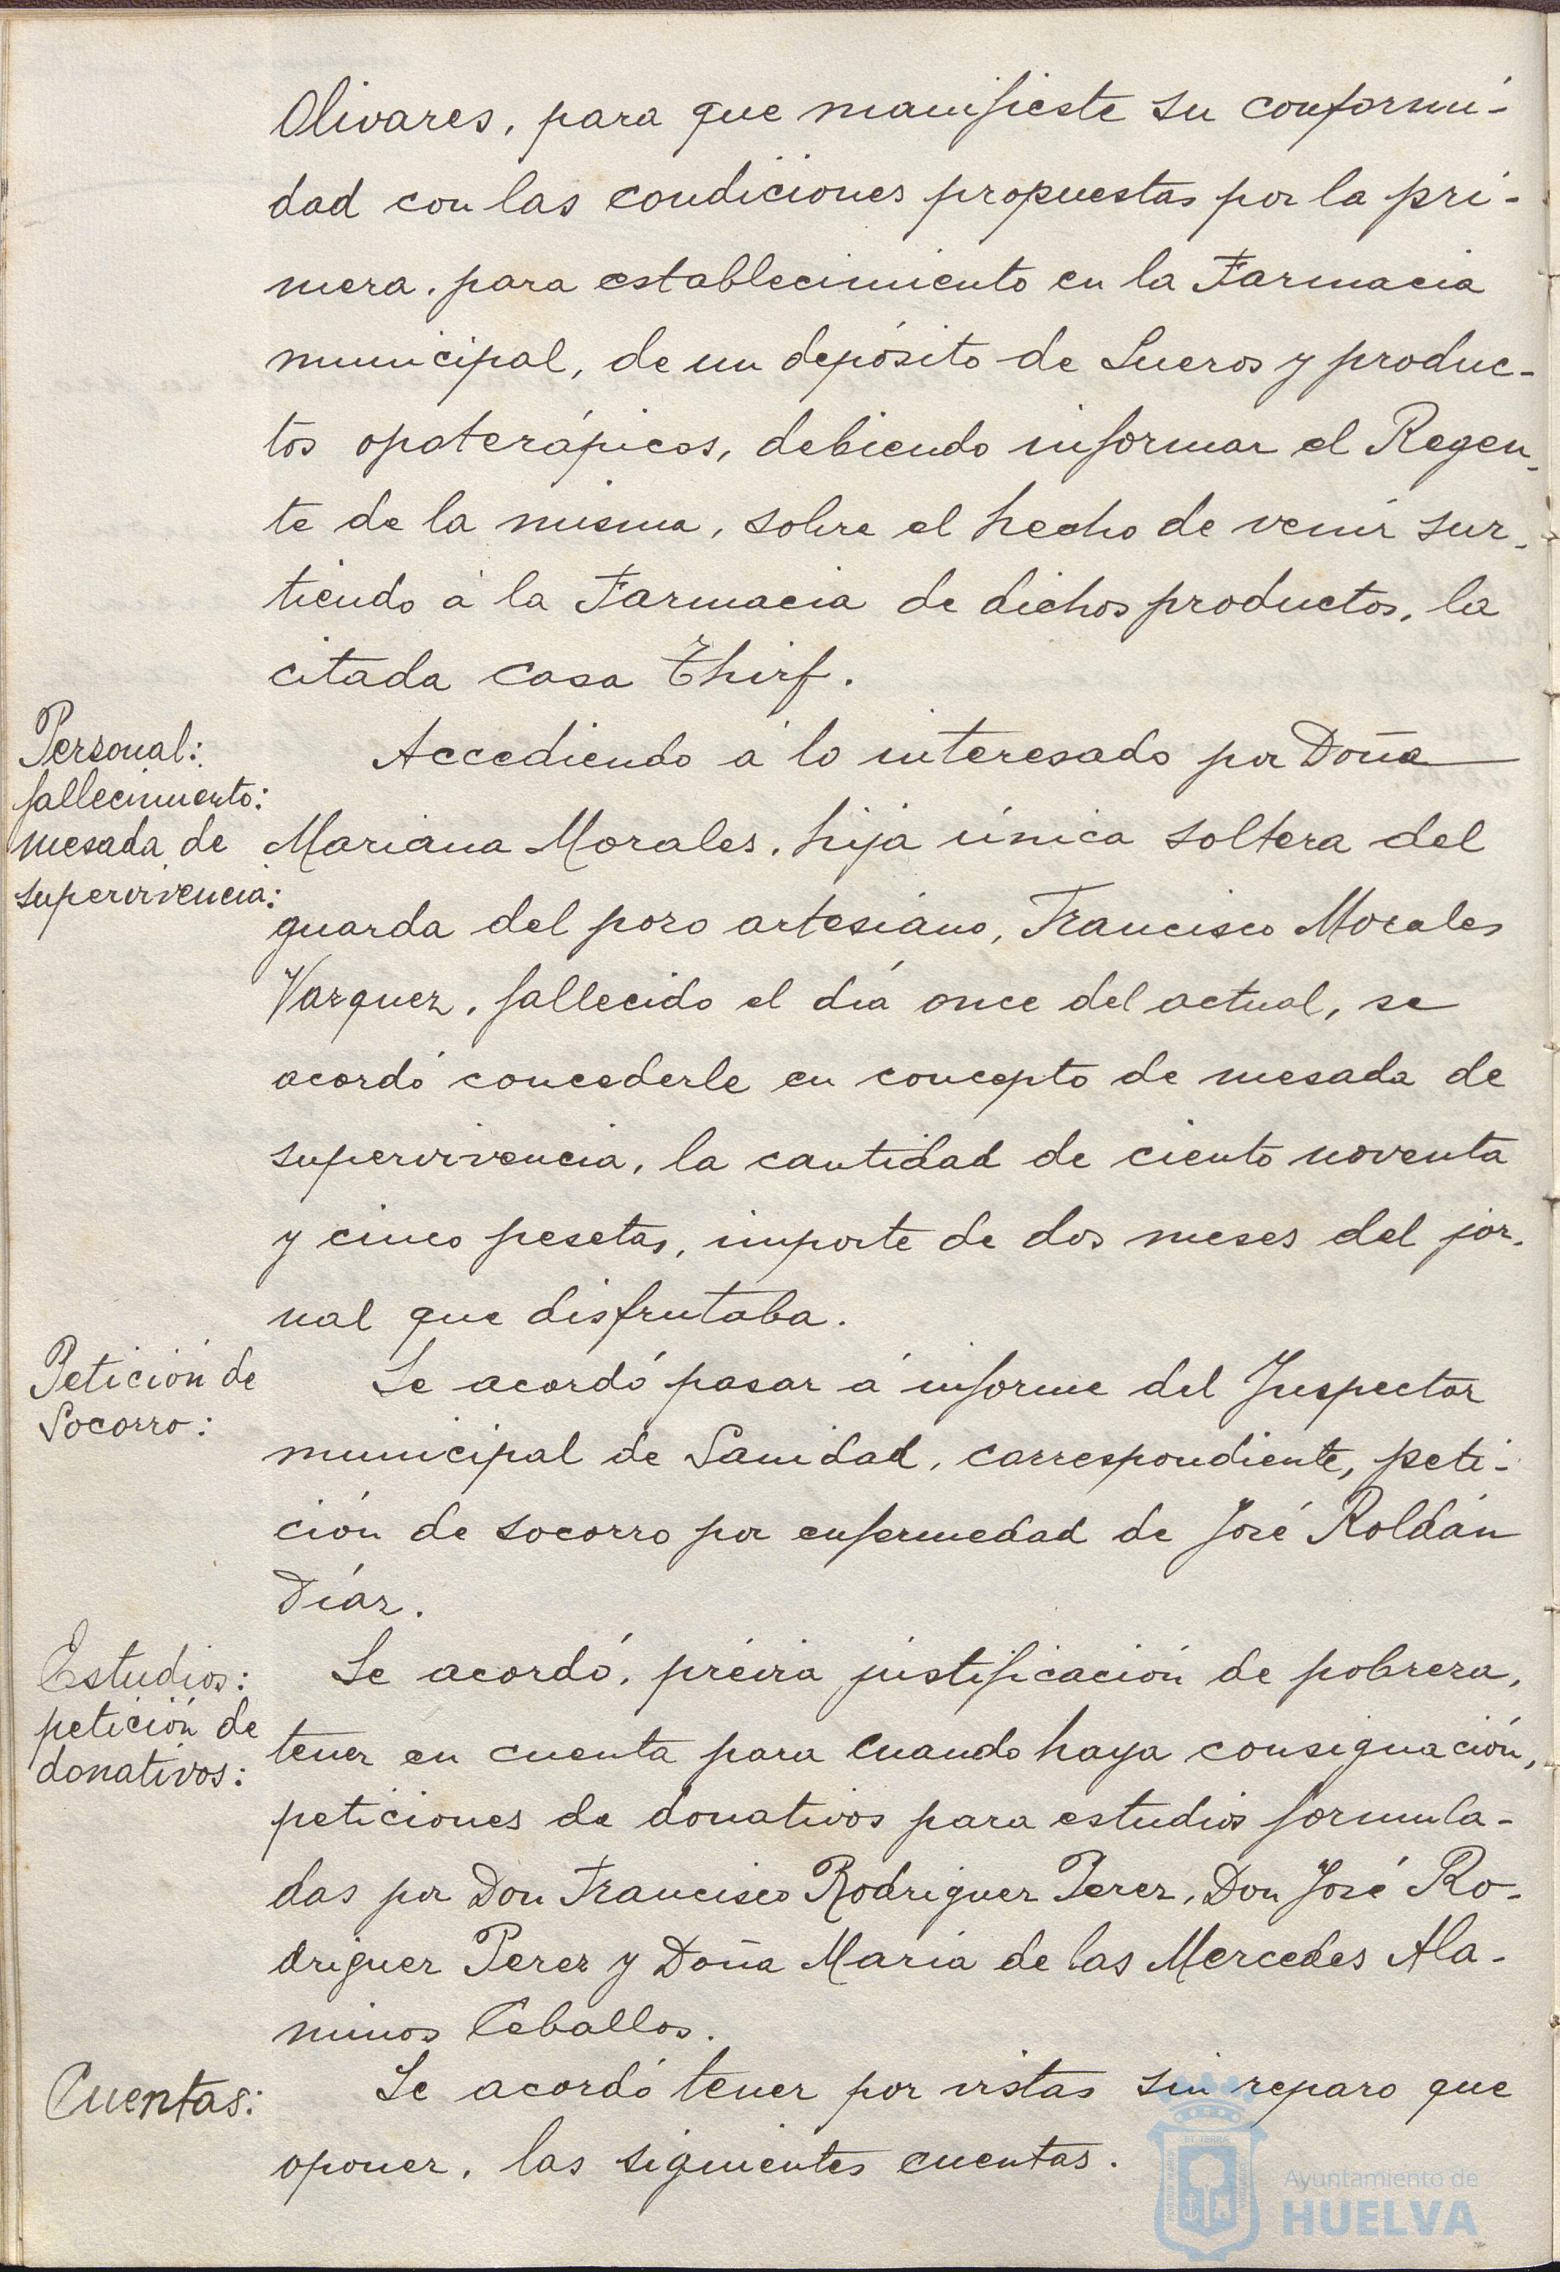 Olivares, para que manifieste su conformi-
dad con las condiciones propuestas por la pri-
mera, para establecimiento en la Farmacia
municipal, de un depósito de Sueros y produc-
tos opoterápicos, debiendo informar el Regen-
te de la misma, sobre el hecho de venir sur-
tiendo á la Farmacia de dichos productos, la
citada casa Thirf.
Personal:
fallecimiento:
mesada de
supervivencia:
Accediendo á lo interesado por Doña
Mariana Morales, hija única soltera del
guarda del pozo artesiano, Francisco Morales
Vazquez, fallecido el día once del actual, se
acordó concederle en concepto de mesada de
supervivencia, la cantidad de ciento noventa
y cinco pesetas, importe de dos meses del jor-
nal que disfrutaba.
Petición de
Socorro:
Se acordó pasar á informe del Inspector
municipal de Sanidad, correspondiente, peti-
ción de socorro por enfermedad de José Roldán
Díaz.
Estudios:
petición de
donativos:
Se acordó, préivia justificación de pobreza,
tener en cuenta para cuando haya consignación,
peticiones de donativos para estudios formula-
das por Don Francisco Rodriguez Perez, Don José Ro-
driguez Perez y Doña María de las Mercedes Ala-
minos Ceballos.
Cuentas:
Se acordó tener por vistas sin reparo que
oponer, las siguientes cuentas.
Ayuntamiento de
HUELVA